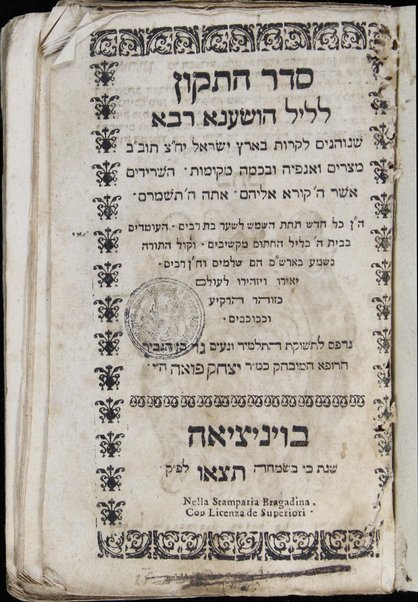 סדר התקון
לליל הושענא רבא
שנוהגים לקרות בארץ ישראל יח״צ תוב״ב
מצרים ואנפיה ובכמה מקומות · השרידים
אשר ה׳ קורא אליהם · אתה ה׳ תשמרם ·
ה״ן כל חדש תחת השמש לשער בת רבים · העומדים
בבית ה׳ בליל החתום מקשיבים · וקול התורה
נשמע בארש״ם הם שלמים וה״ן רבים ·
יאירו ויזהירו לעולם
כזוהר הרקיע
וככוכבים ·
נדפס לתשוקת התלמיד ונעים גד בן הגביר
הרופא המובהק כמ״ר יצחק פואה ה״י ·
בויניציאה
שנת כי בשמחה תצאו לפ״ק
Nella Stamparia Bragadina.
Con Licenza de Superiori ·